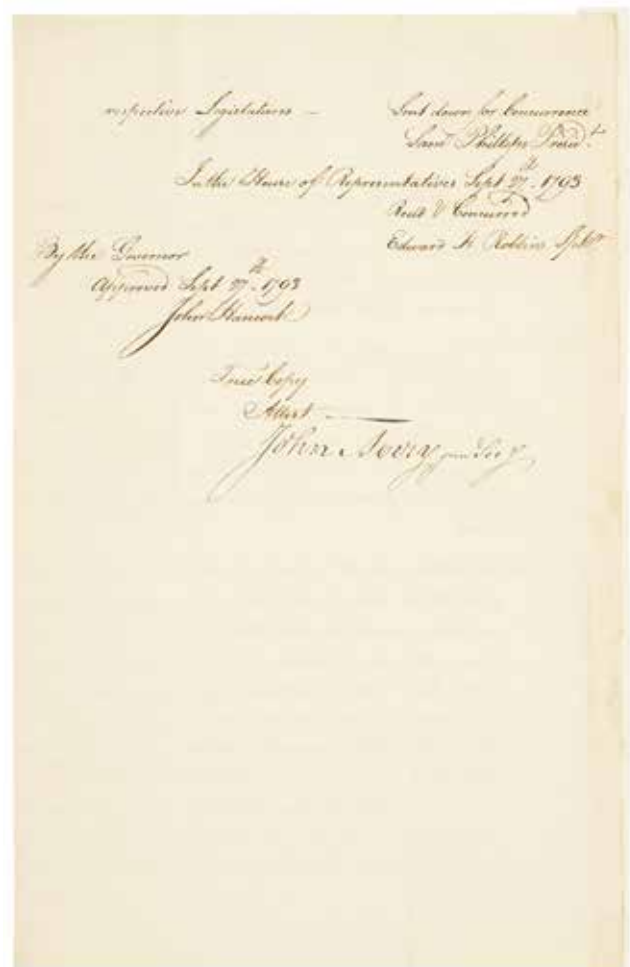 respective Legislatures —
Sent down for Concurrence
Saml Phillips Presidt
In the House of Representatives Sept 27th 1793
Read & Concurred
Edward H Robbins Spkr
By the Governor
Approved Sept 27th 1793
John Hancock
True Copy
Attest
John Avery jun Secy